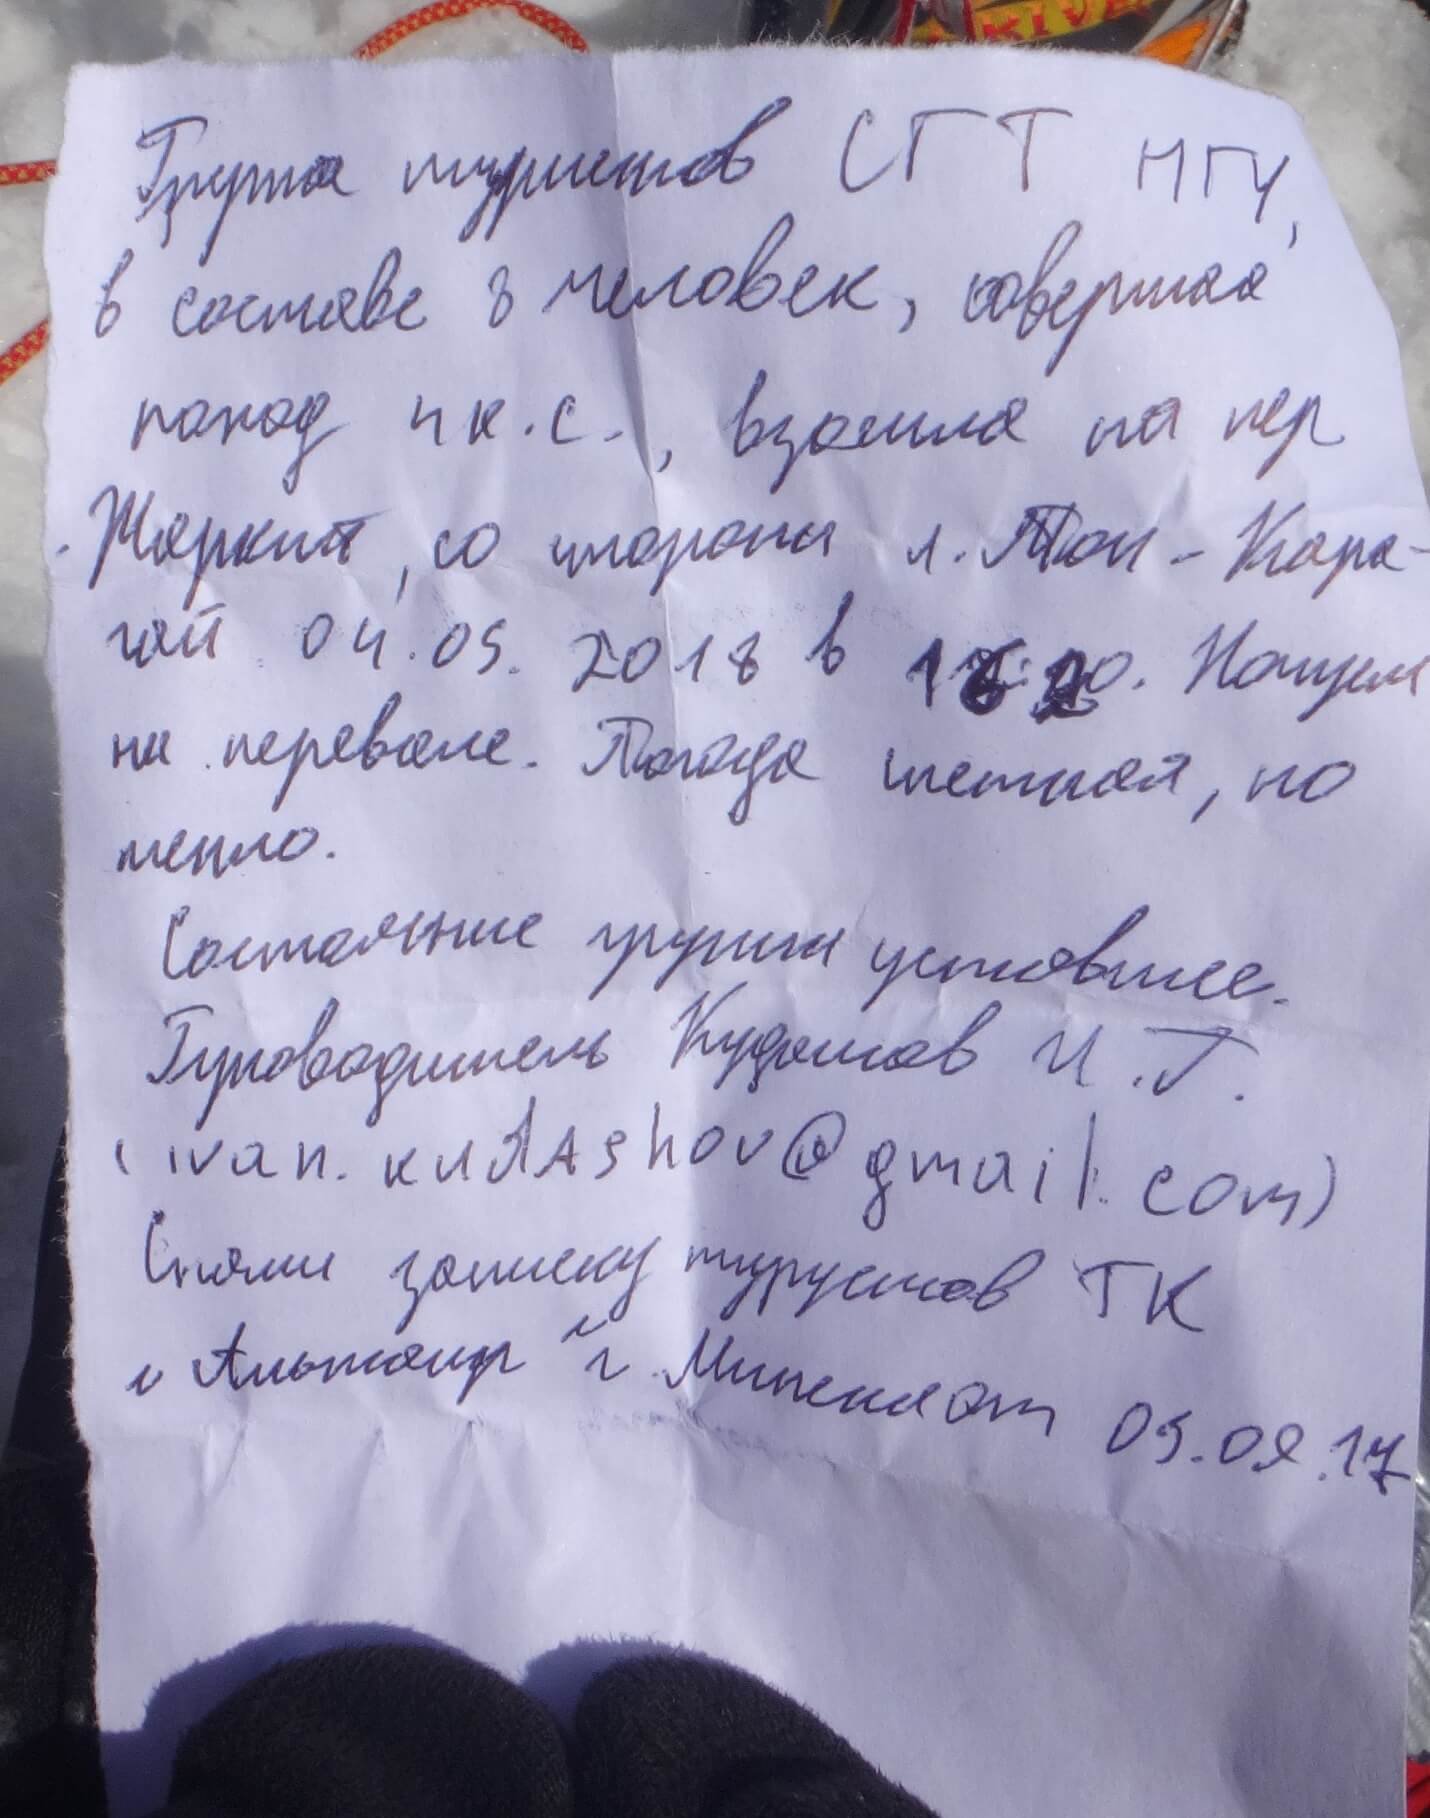 Группа туристов СГТ НГУ,
в составе 8 человек, совершая
поход 4 к.с., взошла на пер
. Жаркит, со стороны л. Топ-Кара-
гай 04.05.2018 в Ночуем
на перевале. Погода снежная, но
тепло.
Состояние группы уставшее.
Руководитель Кудашов И.Г.
(ivan.kudAshov@gmail.com)
Сняли записку туристов ТК
"Альтаир" г. 09.17